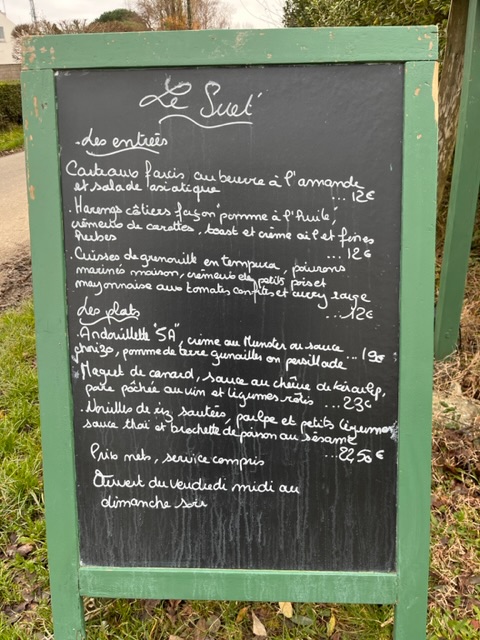 Le Suet'
. Les entrées
Couteaux farcis au beurre à l'amande
et salade asiatique ... 12€
. Harengs côtiers façon "pomme à l'huile",
crémeux de carottes, toast et crème ail et fines
herbes ... 12€
. Cuisses de grenouille en tempura, poivrons
marinés maison, crémeux de petits pois et
mayonnaise aux tomates confites et curry rouge
... 12€
Les plats
. Andouillette "5A", crème au Munster ou sauce
chorizo, pomme de terre grenailles en persillade ... 19€
. Magret de canard, sauce au chêne de
poire pochée au vin et légumes rôtis ... 23€
. Nouilles de riz sautées, poulpe et petits légumes,
sauce thaï et brochette de poisson au sésame
... 22,50€
Prix nets, service compris
Ouvert du vendredi midi au
dimanche soir